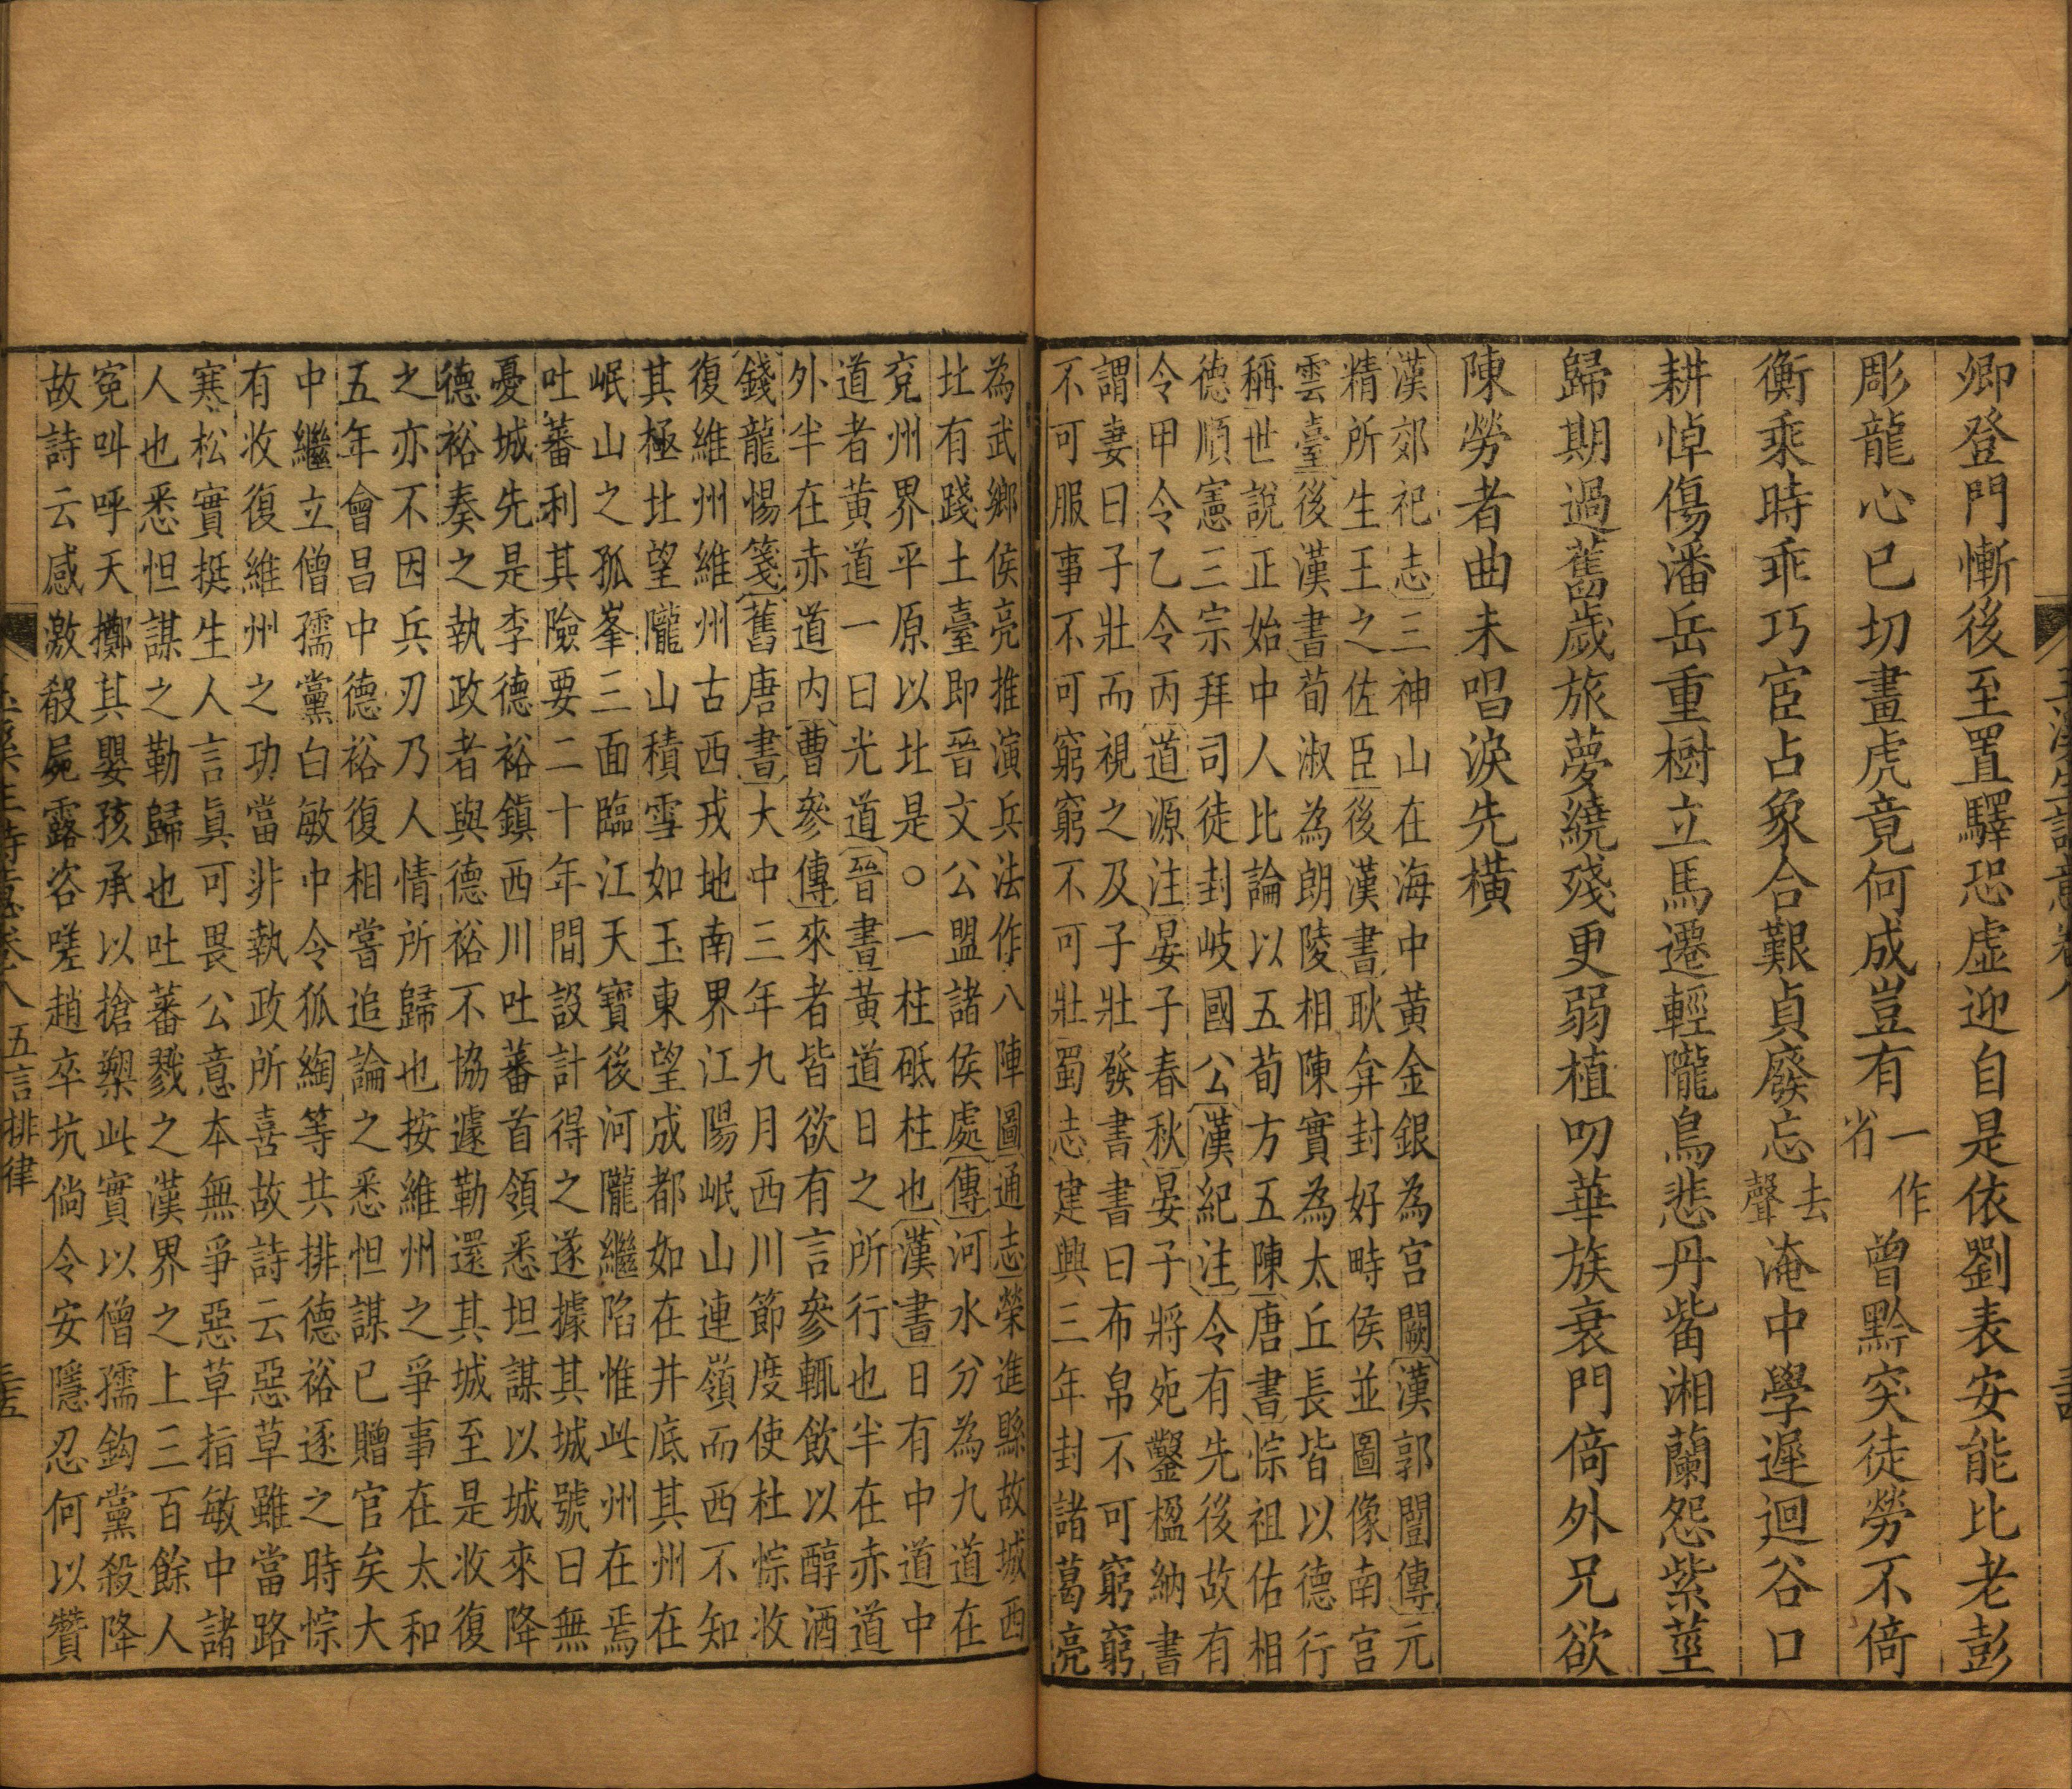 卿登門慚後至置驛恐虛迎自是依劉表安能比老彭
彫龍心已切畫虎竟何成豈有一作省曾黔突徒勞不倚
衡乘時乖巧宦占象合艱貞廢忘去聲淹中學遲迴谷口
耕悼傷潘岳重樹立馬遷輕隴鳥悲丹觜湘蘭怨紫莖
歸期過舊歲旅夢繞殘更弱植叨華族衰門倚外兄欲
陳勞者曲未唱淚先橫
漢郊祀志三神山在海中黃金銀為宮闕漢郭閶傳元
精所生王之佐臣後漢書耿弇封好畤侯並圖像南宮
雲臺後漢書荀淑為朗陵相陳寔為太丘長皆以德行
稱世說正始中人比論以五荀方五陳唐書悰祖佑相
德順憲三宗拜司徒封岐國公漢紀注令有先後故有
令甲令乙令丙道源注晏子春秋晏子將㱾鑿楹納書
謂妻曰子壯而視之及子壯發書書曰布帛不可窮窮
不可服事不可窮窮不可壯蜀志建興三年封諸葛亮
為武鄉侯亮推演兵法作八陣圖通志榮進縣故城西
北有踐土臺即晉文公盟諸侯處傳河水分為九道在
兗州界平原以北是○一柱砥柱也漢書日有中道中
道者黃道一曰光道晉書黃道日之所行也半在赤道
外半在赤道內曹參傳來者皆欲有言參輒飲以醇酒
錢龍惕箋舊唐書大中三年九月西川節度使杜悰收
復維州維州古西戎地南界江陽岷山連嶺而西不知
其極北望隴山積雪如玉東望成都如在井底其州在
岷山之孤峯三面臨江天寶後河隴繼陷惟此州在焉
吐蕃利其險要二十年間設計得之遂據其城號曰無
憂城先是李德裕鎮西川吐蕃首領悉坦謀以城來降
德裕奏之執政者與德裕不協遽勒還其城至是收復
之亦不因兵刃乃人情所歸也按維州之爭事在太和
五年會昌中德裕復相嘗追論之悉怛謀已贈官矣大
中繼立僧孺黨白敏中令狐綯等共排德裕逐之時悰
有收復維州之功當非執政所喜故詩云惡草雖當路
寒松實挺生人言真可畏公意本無爭惡草指敏中諸
人也悉怛謀之勒歸也吐蕃戮之漢界之上三百餘人
冤叫呼天擲其嬰孩承以搶槊此實以僧孺鈎黨殺降
故詩云感激殺屍露咨嗟趙卒坑倘令安隱忍何以贊
五言排律